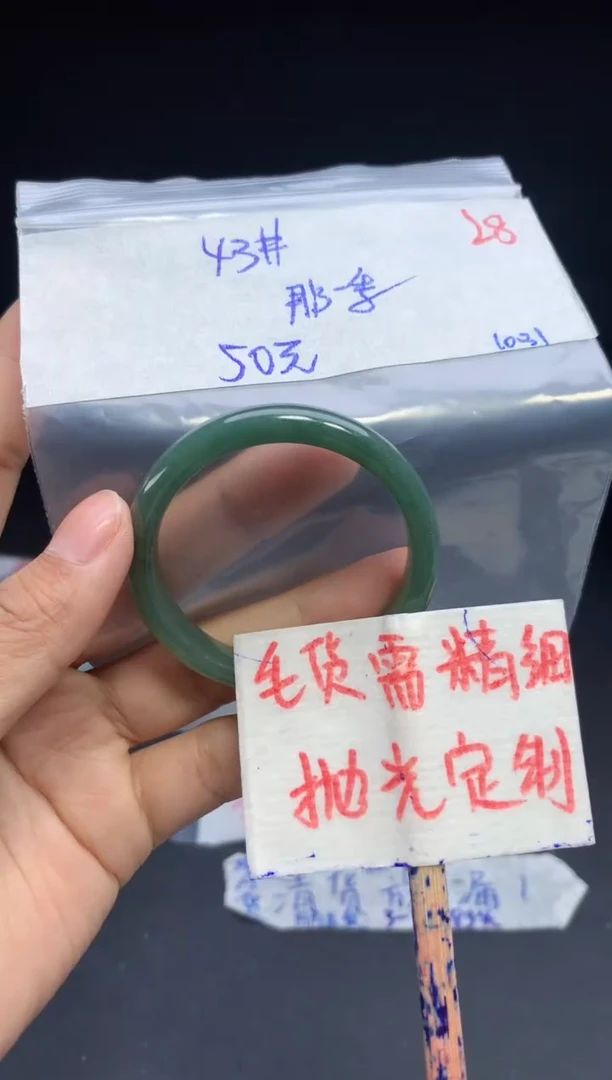 43#
28
那一季
50元
毛货需精细
抛光定制
清货
漏!